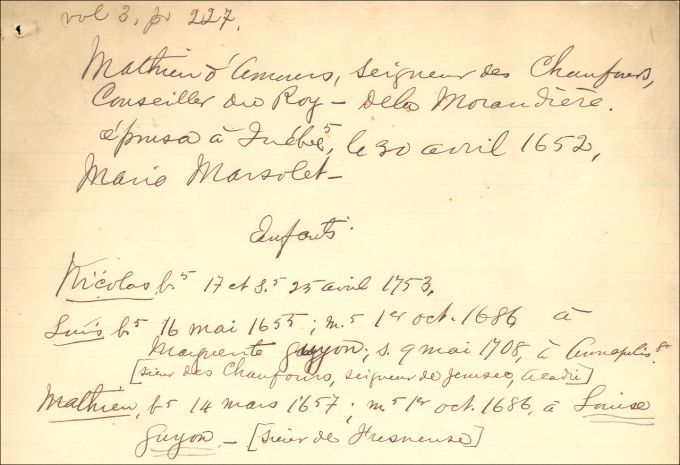 vol 3, p. 227.
Mathieu d'Amours, seigneur des Chaufours,
Conseiller du Roy – De la Morandière.
épousa à Québec 5, le 30 avril 1652,
Marie Marsolet –
Enfants
Nicolas b. 5 17 et s. 5 25 avril 1753.
Louis b. 5 16 mai 1655; m. 5 1er oct. 1686 à
Marguerite Guyon; s. 9 mai 1708, à Annapolis. 8
[sieur des Chaufours, seigneur de Jemsec, Acadie]
Mathieu, b. 5 14 mars 1657; m. 5 1er oct. 1686, à Louise
Guyon – [sieur de Fresneuse]